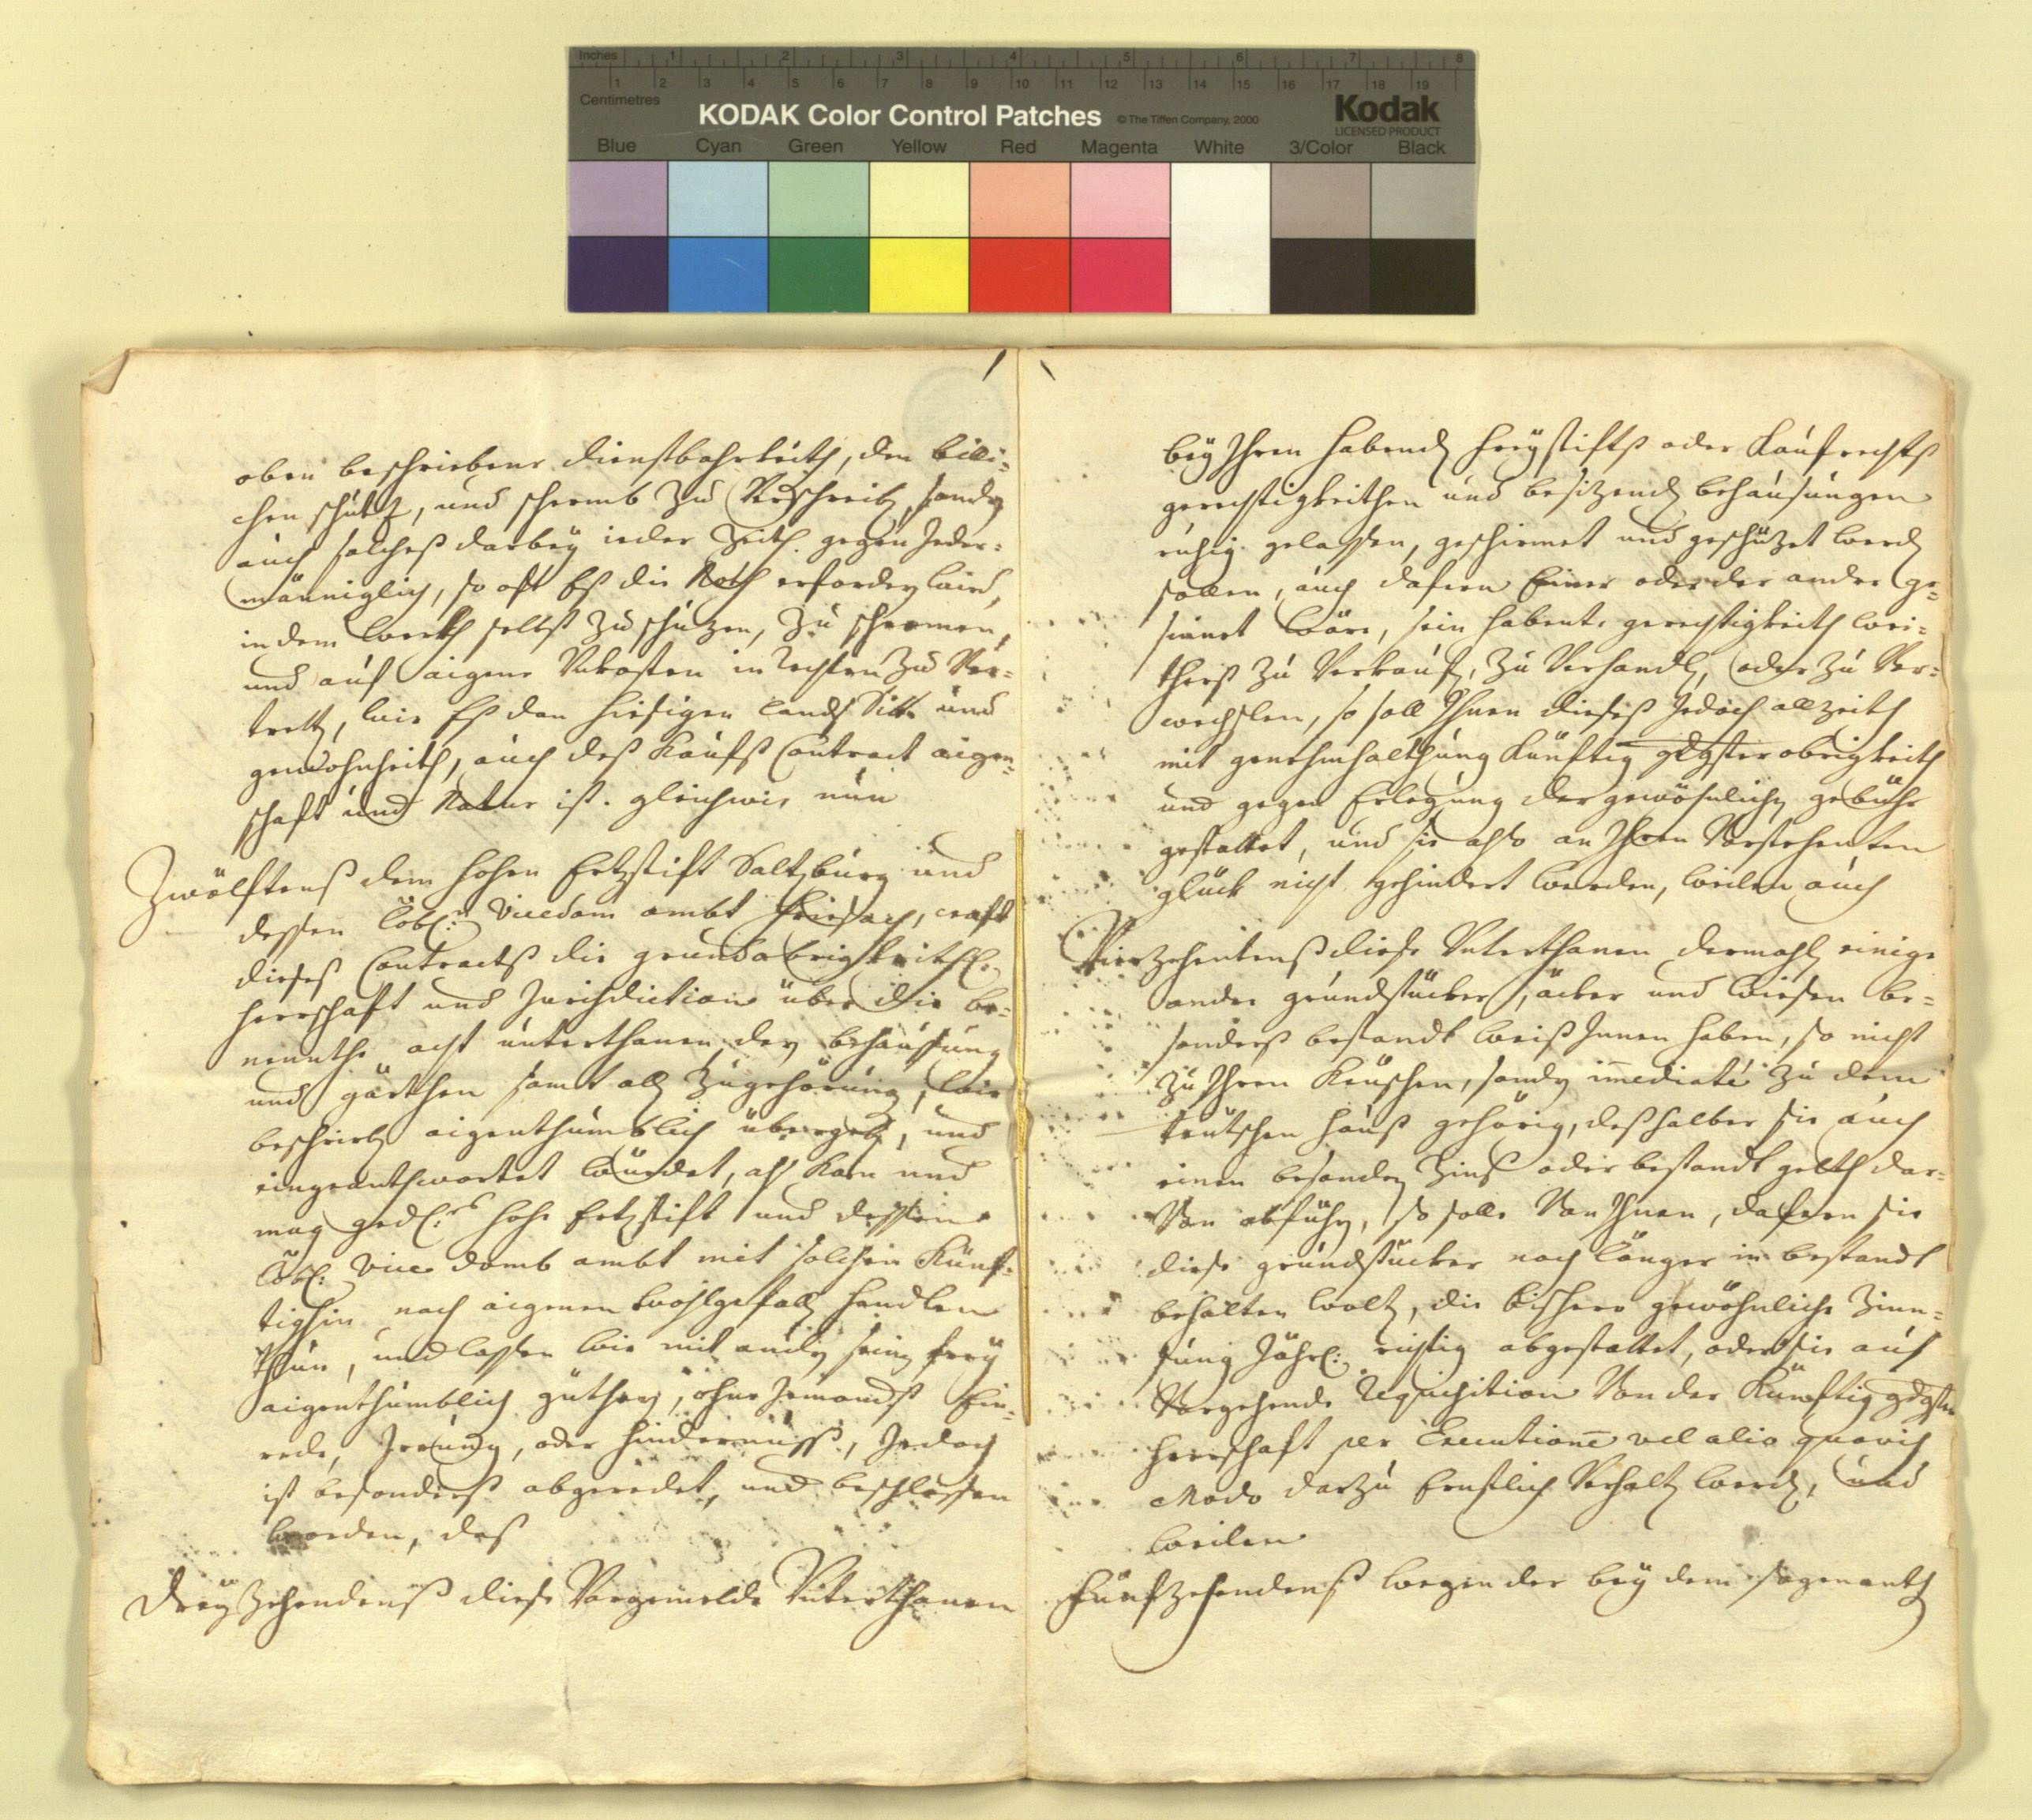 Inches 1 2 3 4 5 6 7 8
1 2 3 4 5 6 7 8 9 10 11 12 13 14 15 16 17 18 19
Centimetres
KODAK Color Control Patches © The Tiffen Company, 2000 Kodak
LICENSED PRODUCT
Blue Cyan Green Yellow Red Magenta White 3/Color Black
oben beschriebene dienstbahrkeith, den billi-
chen schutz, und schermb zu Verschreib, sondern
auch solches darbey ieder Zeith gegen Jeder-
männiglich, so oft Eß die Noth erfordern wird,
in dem werkh selbst zu schüzen, zu schermen,
und auf aigene Unkosten in rechten zu Ver-
trett, wie Eß den hiesigen Landts Sitt und
gewohnheith, auch deß Kaufs Contract aigen-
schaft und Natur ist. gleichwie nun
Zwölftenß dem hohen Ertzstift Saltzburg und
dessen löbl: Vicedom ambt Friesach, craft
dieses Contracts die grundobrigkeithl:
herrschaft und Jurisdiction über die be-
nennthe acht unterthanen, der behaussung
und gärthen samt all Zugehörung, wie
beschrieb aigenthumblich übergeb, und
eingeanthwortet würdet, alß Kan und
mag ged: hohe Ertzstift und dessen
löbl: Vice domb ambt mit solchen Künf-
tighin nach aigenen wohlgefall handlen
thun, und lassen wie mit andern sein frey
aigenthumblich güthern, ohne Jemandß Ein-
rede, Irrung, oder hindernuss, Jedoch
ist besonderß abgeredet, und beschlossen
worden, daß
Dreyzehendenß diese Vorgemelde Unterthanen
bey Ihren habend freystiftß oder Kaufrechtß
gerechtigkeithen und besizend behausungen
ruhig gelassen, geschirmet und geschüzet werd
sollen, auch dafern Einer oder der ander ge-
sinnet wäre, sein habente gerechtigkeith wei-
therß zu Verkauf, zu Verhandl, oder zu Ver-
wechslen, so soll Ihnen dieseß Jedoch allzeith
mit genehmhalthung Künftig gdgster obrigkeith
und gegen Erlegung der gewöhnlich gebühr
gestattet, und sie also an Ihren Vorstehenten
glück nicht gehindert werden, weilen auch
Vierzehentenß diese Unterthanen dermahl einige
ander grundstücker, äcker und wiesen be-
sonderß bestandt weiß Innen haben, so nicht
zu Ihren Keuschen, sondern immediate zu dem
teutschen hauß gehörig, deßhalber sie auch
einen besondern Zinß oder bestandt gelth dar-
Von abführn, so solle Von Ihnen, dafern sie
diese grundstücker noch länger in bestandt
behalten wolt, die bishero gewöhnliche Zinn-
sung Jährl: richtig abgestattet, oder sie auf
Vorgehende Requisition Von der Künftig gdgsten
herrschaft per Executionem vel alio quovis
Modo darzu Ernstlich Verhalt werd, und
weilen
Fünfzehendenß wegen der bey dem sogenanth